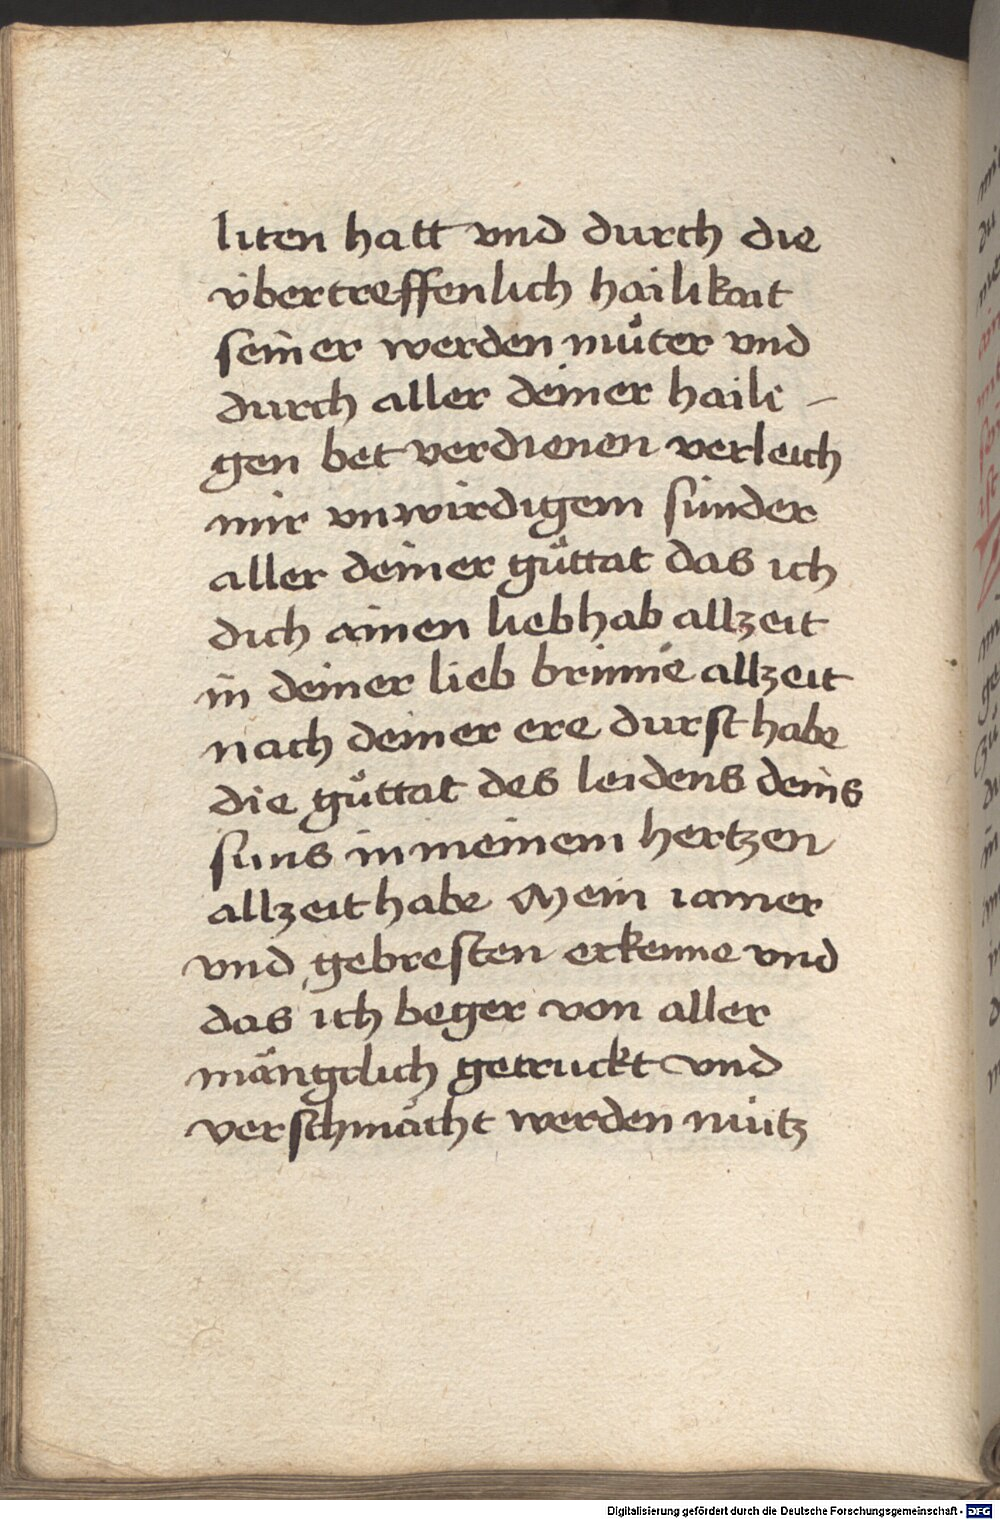 liten hatt vnd durch die
v̇bertreffenlich hailikait
seiner werden můter vnd
durch aller deiner haili –
gen bet verdienen verleich
mir vnwirdigem sünder
aller deiner gůttat das ich
dich ainen liebhab allzeit
in deiner lieb brinne allzeit
nach deiner ere durst habe
die gůttat des leidens deins
suns in meinem hertzen
allzeit habe Mein iamer
vnd gebresten erkenne vnd
das ich beger von aller
mängclich getruckt vnd
verschmächt werden nütz
Digitalisierung gefördert durch die Deutsche Forschungsgemeinschaft - DFG